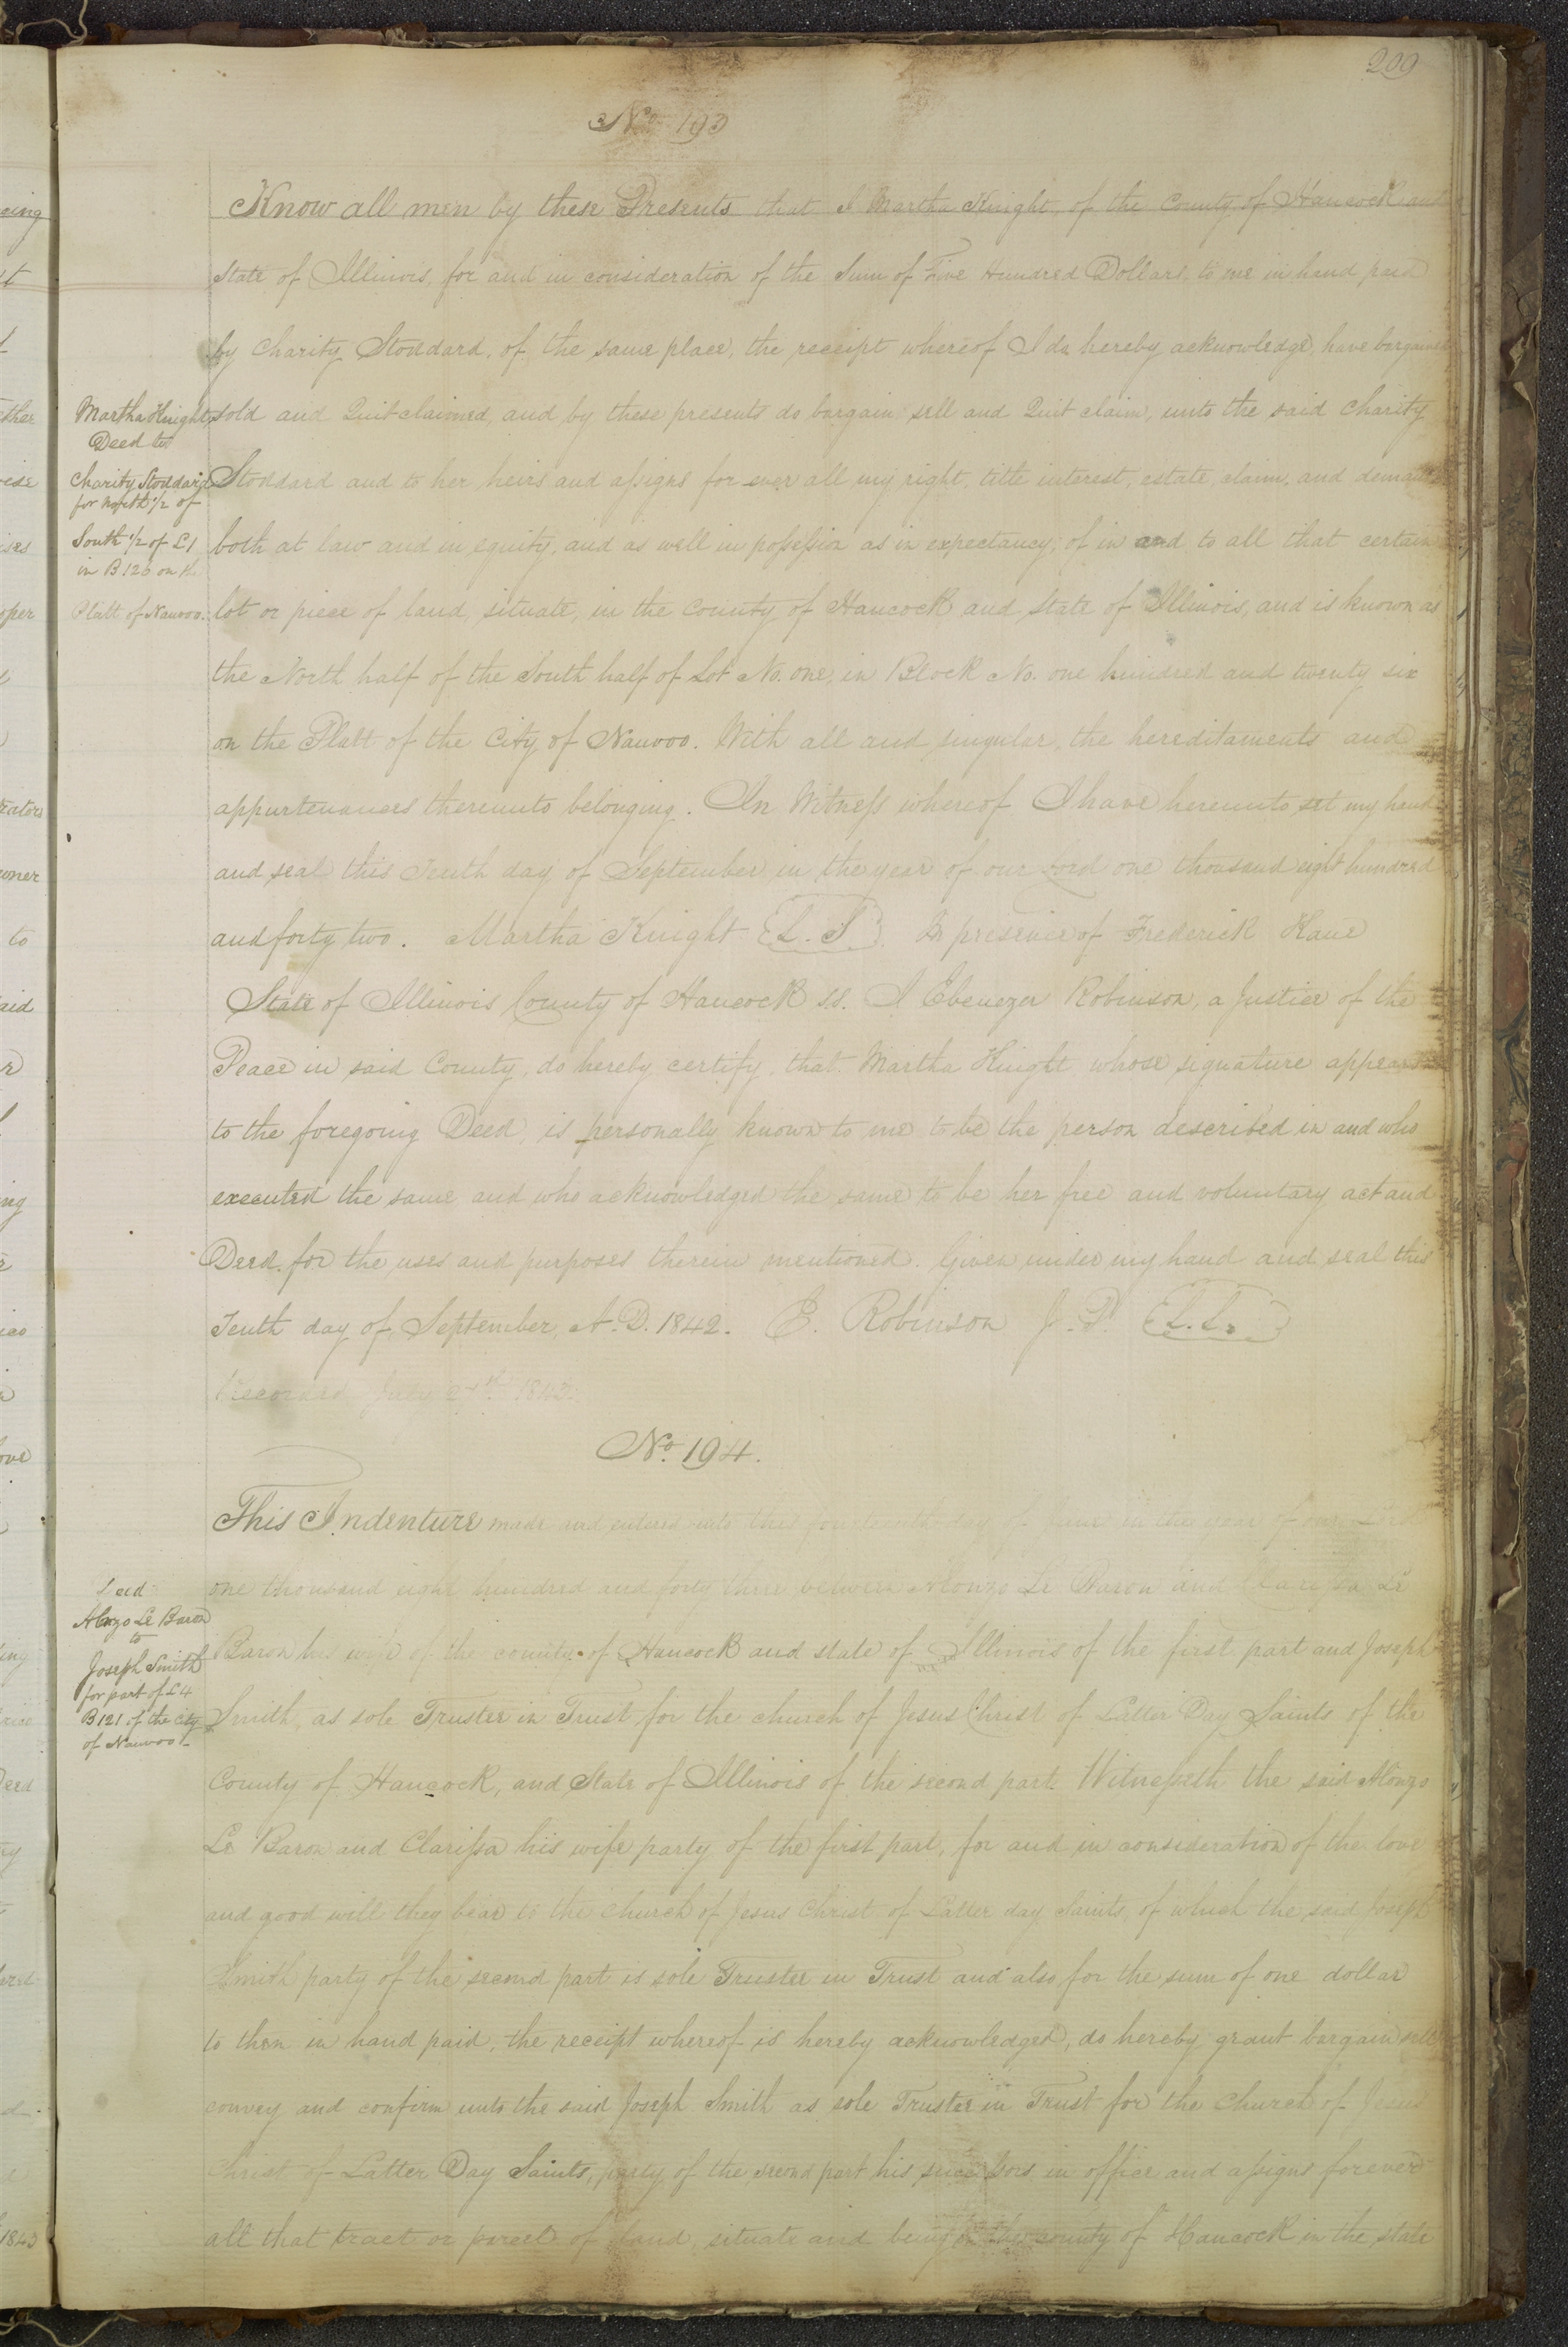 209
No 193
Know all men by these Presents that I Martha Knight of the County of Hancock and
State of Illinois, for and in consideration of the Sum of Five Hundred Dollars, to me in hand paid
by Charity Stoddard, of the same place, the receipt whereof I do hereby acknowledge, have bargained
Martha Knight
Deed to
Charity Stoddard
for North 1/2 of
South 1/2 of L1
in B.126 on
Platt of Nauvoo.
sold and Quit claimed, and by these presents do bargain sell and Quit claim, unto the said Charity
Stoddard and to her heirs and assigns for ever all my right, title interest, estate, claim, and demand
both at law and in equity, and as well in possession as in expectancy; of in and to all that certain
lot or piece of land, situate, in the County of Hancock and State of Illinois, and is known as
the North half of the South half of Lot No. one, in Block No. one hundred and twenty six
on the Platt of the City of Nauvoo. With all and singular, the hereditaments and
appurtenances thereunto belonging. In Witness whereof I have hereunto set my hand
and seal this Tenth day of September in the year of our Lord one thousand eight hundred
and forty two. Martha Knight L.S. In presence of Frederick Kane
State of Illinois County of Hancock s.s. I Ebenezer Robinson, a Justice of the
Peace in said County, do hereby certify, that Martha Knight whose signature appears
to the foregoing Deed, is personally known to me to be the person described in and who
executed the same and who acknowledged the same to be her free and voluntary act and
Deed. for the uses and purposes therein mentioned. Given under my hand and seal this
Tenth day of September, A.D. 1842. E. Robinson J.P. L.S.
Recorded July 1843.
No. 194.
This Indenture made and entered into this day of June in the year of our Lord
one thousand eight hundred and forty three between Alonzo Le Baron and Clarissa Le
Deed
Alonzo Le Baron
to
Joseph Smith
for part of L4
B121 of the City
of Nauvoo
Baron his wife of the county of Hancock and state of Illinois of the first part and Joseph
Smith, as sole Trustee in Trust for the church of Jesus Christ of Latter Day Saints of the
County of Hancock, and State of Illinois of the second part. Witnesseth the said Alonzo
Le Baron and Clarissa his wife party of the first part, for and in consideration of the love
and good will they bear to the church of Jesus Christ of Latter day Saints, of which the said Joseph
Smith party of the second part is sole Trustee in Trust and also for the sum of one dollar
to them in hand paid, the receipt whereof is hereby acknowledged, do hereby grant bargain sell
convey and confirm unto the said Joseph Smith as sole Trustee in Trust for the Church of Jesus
Christ of Latter Day Saints, party of the second part his successors in office and assigns forever
all that tract or parcel of land, situate and being in the county of Hancock in the state